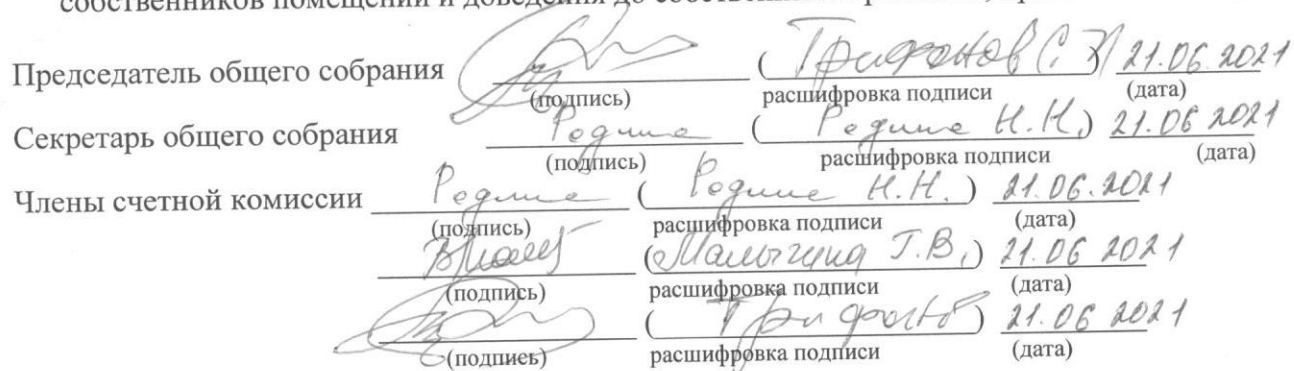 собственников помещений и доведения до
Председатель общего собрания (Трифонов С.З) 21.06.2021
(подпись) расшифровка подписи (дата)
Секретарь общего собрания Родина (Родина Н.Н.) 21.06 2021
(подпись) расшифровка подписи (дата)
Члены счетной комиссии Родина (Родина Н.Н.) 21.06.2021
(подпись) расшифровка подписи (дата)
(Малыгина Г.В.) 21.06 2021
(подпись) расшифровка подписи (дата)
(Трифонов) 21.06 2021
(подпись) расшифровка подписи (дата)